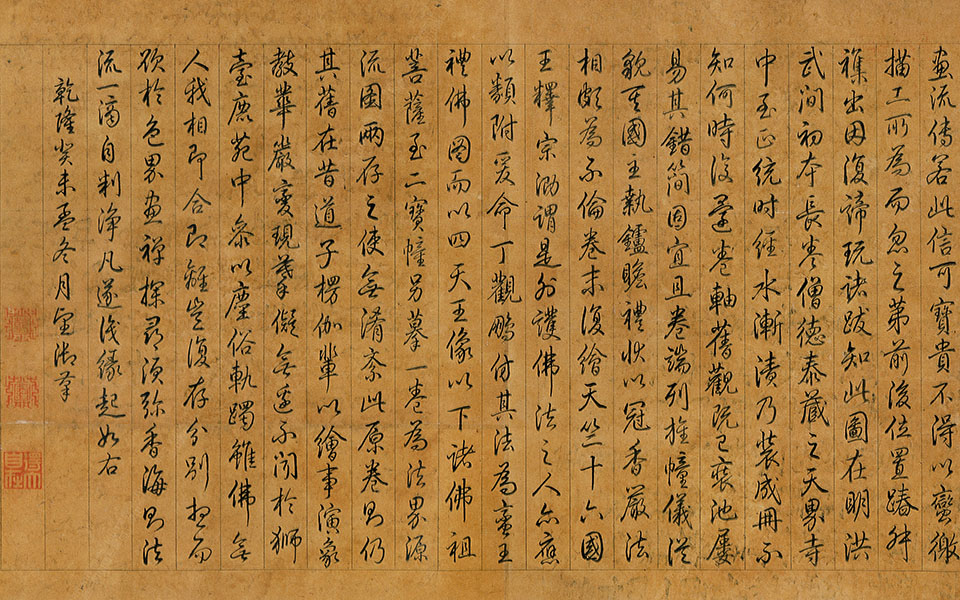 畫流傳若此信可寶貴不得以蠻徼
描工所為而忽之第前後位置踳舛
襍出因復諦玩諸跋知此圖在明洪
武間初本長卷僧德泰藏之天界寺
中至正統時經水漸漬乃裝成冊不
知何時復還卷軸舊觀既已裝池屢
易其錯簡固宜且卷端列旌幢儀從
貌其國主執鑪瞻禮狀以冠香嚴法
相頗為不倫卷末復繪天竺十六國
王釋宗泐謂是外護佛法之人亦應
以類附爰命丁觀鵬仿其法為蠻王
禮佛圖而以四天王像以下諸佛祖
菩薩至二寶幢另摹一卷為法界源
流圖兩存之使無淆紊此原卷則仍
其舊在昔道子楞伽輩以繪事演象
教華嚴變現摹儗無遺不聞於獅
臺鹿苑中參以塵俗軌躅雖佛無
人我相即合即離豈復存分別想而
欲於色界畫禪探尋須弥香海則法
流一滴自判淨凡遂識緣起如右
乾隆癸未孟冬月望御筆